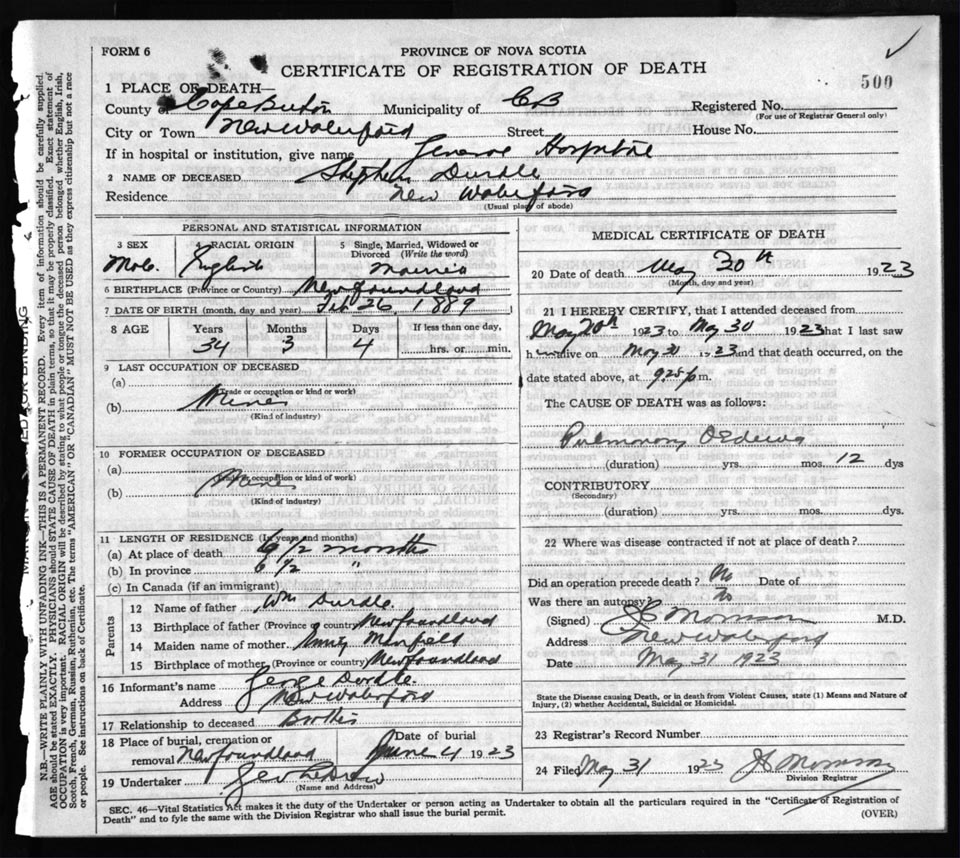 FORM 6
PROVINCE OF NOVA SCOTIA
CERTIFICATE OF REGISTRATION OF DEATH
500
1 PLACE OF DEATH—
County of Cape Breton Municipality of CB Registered No.
(For use of Registrar General only)
City or Town New Waterford Street House No.
If in hospital or institution, give name General Hospital
2 NAME OF DECEASED Stephen Durdle
Residence New Waterford
(Usual place of abode)
PERSONAL AND STATISTICAL INFORMATION
3 SEX RACIAL ORIGIN 5 Single, Married, Widowed or Divorced (Write the word)
Male English Married
6 BIRTHPLACE (Province or Country) Newfoundland
7 DATE OF BIRTH (month, day and year) Feb 26, 1889
8 AGE Years Months Days If less than one day,
34 3 4 hrs. or min.
9 LAST OCCUPATION OF DECEASED
(a)
(Trade or occupation or kind of work)
(b) Miner
(Kind of industry)
10 FORMER OCCUPATION OF DECEASED
(a)
(Trade or occupation or kind of work)
(b)
(Kind of industry)
11 LENGTH OF RESIDENCE (In years and months)
(a) At place of death 6 1/2 months
(b) In province 6 1/2 "
(c) In Canada (if an immigrant)
Parents
12 Name of father Wm Durdle.
13 Birthplace of father (Province or country) Newfoundland
14 Maiden name of mother
15 Birthplace of mother (Province or country) Newfoundland
16 Informant's name George Durdle
Address New Waterford
17 Relationship to deceased Brother
18 Place of burial, cremation or removal Newfoundland Date of burial June 4 1923
19 Undertaker
(Name and Address)
MEDICAL CERTIFICATE OF DEATH
20 Date of death May 30th 1923
(Month, day and year)
21 I HEREBY CERTIFY, that I attended deceased from
May 20th 1923 to May 30 1923 that I last saw
h im alive on May 30 1923 and that death occurred, on the
date stated above, at m.
The CAUSE OF DEATH was as follows:
Pulmonary Oedema
(duration) yrs. mos. 12 dys
CONTRIBUTORY
(Secondary)
(duration) yrs. mos. dys.
22 Where was disease contracted if not at place of death?
Did an operation precede death? No Date of
Was there an autopsy?
(Signed) Morrison M.D.
Address New Waterford
Date May 31 1923
State the Disease causing Death, or in death from Violent Causes, state (1) Means and Nature of Injury, (2) whether Accidental, Suicidal or Homicidal.
23 Registrar's Record Number
24 Filed May 31 1923 Morrison
Division Registrar
SEC. 46—Vital Statistics Act makes it the duty of the Undertaker or person acting as Undertaker to obtain all the particulars required in the "Certificate of Registration of
Death" and to fyle the same with the Division Registrar who shall issue the burial permit.
(OVER)
N.B.—WRITE PLAINLY WITH UNFADING INK—THIS IS A PERMANENT RECORD. Every item of information should be carefully supplied.
AGE should be stated EXACTLY. PHYSICIANS should STATE CAUSE OF DEATH in plain terms, so that it may be properly classified. Exact statement of
OCCUPATION is very important. RACIAL ORIGIN will be described by stating to what people or tongue the deceased person belonged whether English, Irish,
Scotch, French, German, Russian, Ruthenian, etc. The terms "AMERICAN" OR "CANADIAN" MUST NOT BE USED as they express citizenship but not a race
or people. See instructions on back of Certificate.